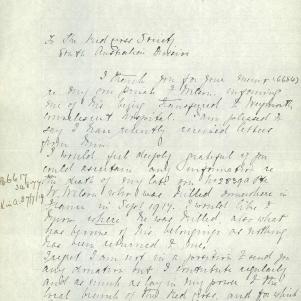 To The Red Cross Society
South Australian Division
I thank you for your memo 166863
re my son Frank J Wilson, informing
me of his being transferred to Weymouth
convalescent hospital. I am pleased to
say I have recently received letters
from him.
I would feel deeply grateful if you
could ascertain any information re
the death of my late son No 2839
W. Wilson who was killed somewhere in
France in Sept 1917. I would like to
know where he was killed also what
has become of his belongings as nothing
has been returned to me.
I regret I am not in a position to send you
any donation but I contribute regularly
and as much as lay in my power to the
local branch of the Red Cross, and for which